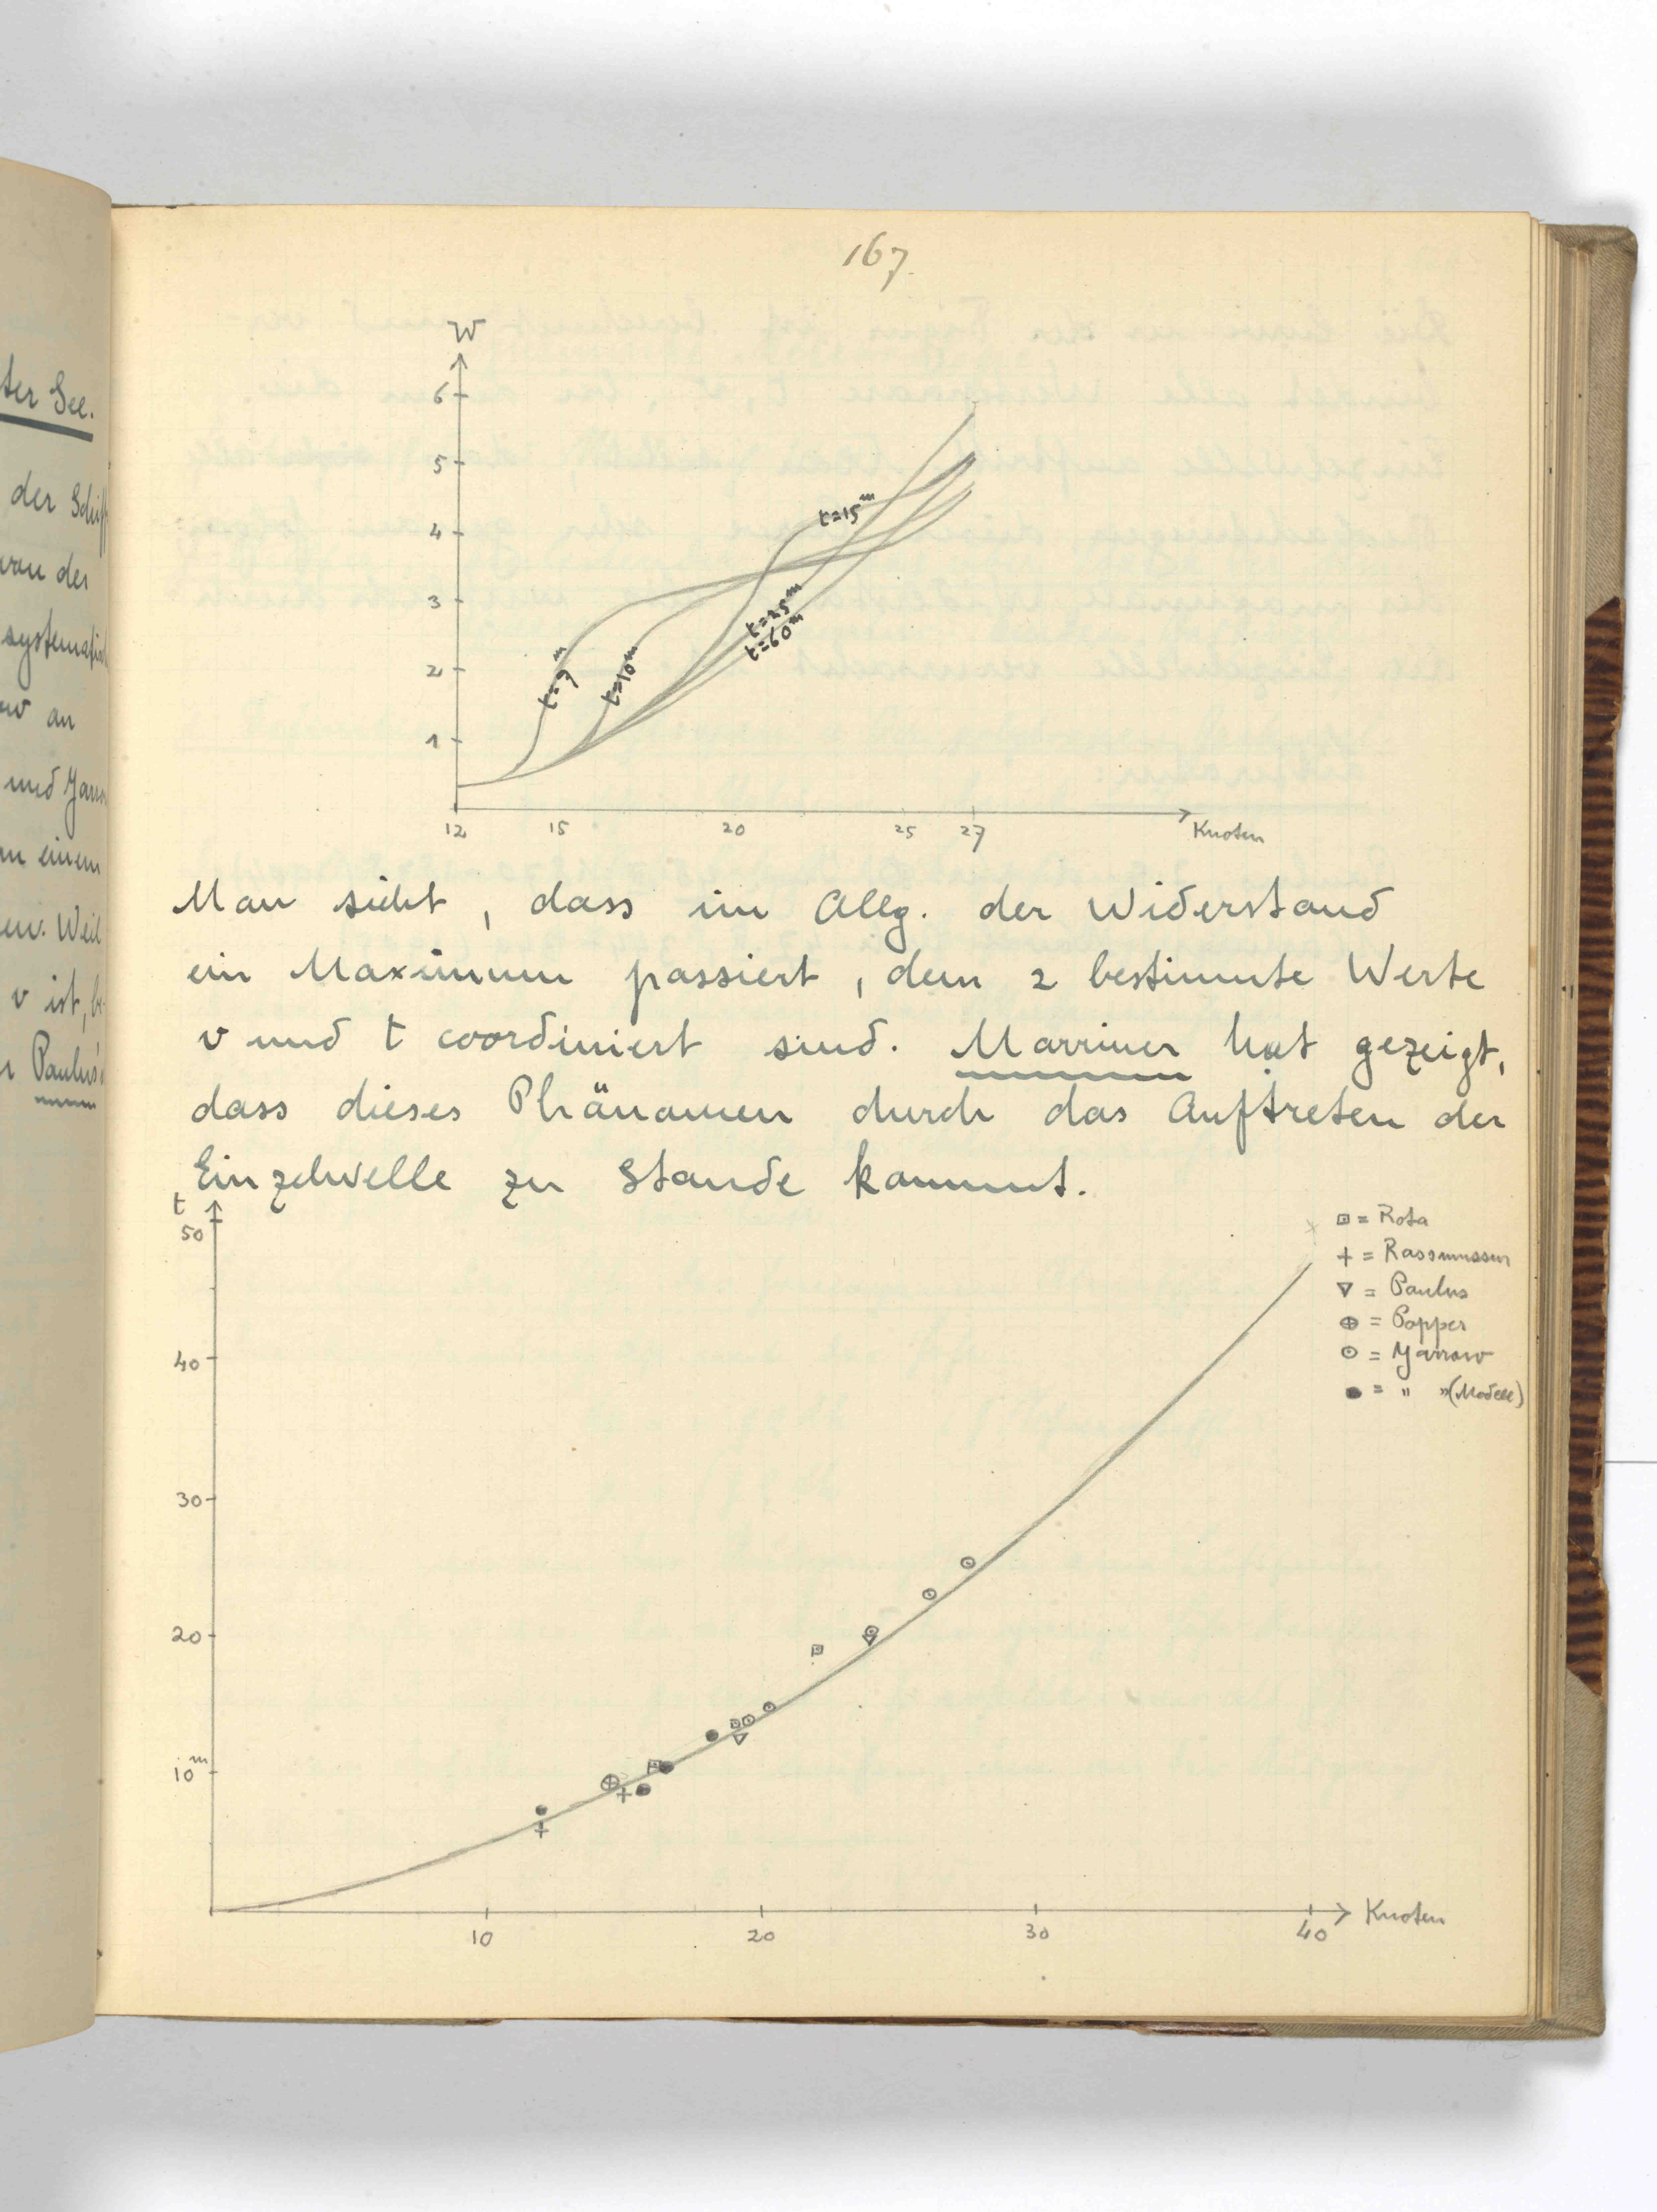 167.
ter See.
der Schiff
von der
systematisch
an
und Yarrow
einem
Weil
v ist, be-
Paulus
W
6
5
4
3
2
1
t=7m
t=10m
t=15m
t=25m
t=60m
12 15 20 25 27 Knoten
Man sieht, dass im Allg. der Widerstand
ein Maximum passiert, dem 2 bestimmte Werte
v und t coordiniert sind. Marriner hat gezeigt,
dass dieses Phänomen durch das Auftreten der
Einzelwelle zu Stande kommt.
t
50
40
30
20
10m
□ = Rota
+ = Rassmussen
▽ = Paulus
⊕ = Popper
⊙ = Yarrow
● = " "(Modell)
10 20 30 40 Knoten